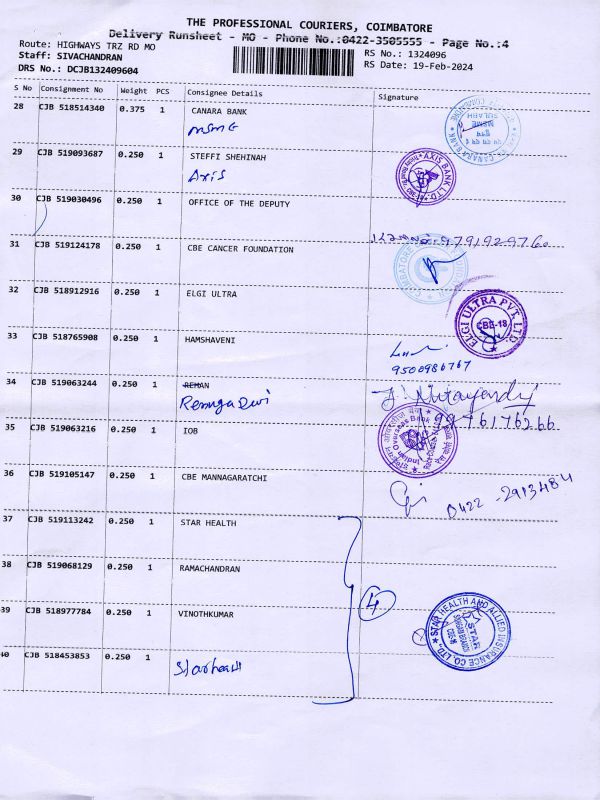 THE PROFESSIONAL COURIERS, COIMBATORE
Delivery Runsheet - MO - Phone No.:0422-3505555 - Page No.:4
Route: HIGHWAYS TRZ RD MO RS No.: 1324096
Staff: SIVACHANDRAN RS Date: 19-Feb-2024
DRS No.: DCJB132409604
S No Consignment No Weight PCS Consignee Details Signature
28 CJB 518514340 0.375 1 CANARA BANK
MSME
29 CJB 519093687 0.250 1 STEFFI SHEHINAH
Axis
AXIS BANK LTD.
30 CJB 519030496 0.250 1 OFFICE OF THE DEPUTY
9791929760
31 CJB 519124178 0.250 1 CBE CANCER FOUNDATION
32 CJB 518912916 0.250 1 ELGI ULTRA
ELGI ULTRA PVT. LTD.
CBE-18
33 CJB 518765908 0.250 1 HAMSHAVENI
9500986767
34 CJB 519063244 0.250 1 REHAN
Renuga Devi
9976176266
35 CJB 519063216 0.250 1 IOB
Indian Overseas Bank
36 CJB 519105147 0.250 1 CBE MANNAGARATCHI
0422-2913484
37 CJB 519113242 0.250 1 STAR HEALTH
38 CJB 519068129 0.250 1 RAMACHANDRAN
4
39 CJB 518977784 0.250 1 VINOTHKUMAR
STAR HEALTH AND ALLIED INSURANCE CO. LTD.
STAR
40 CJB 518453853 0.250 1
Starhealth